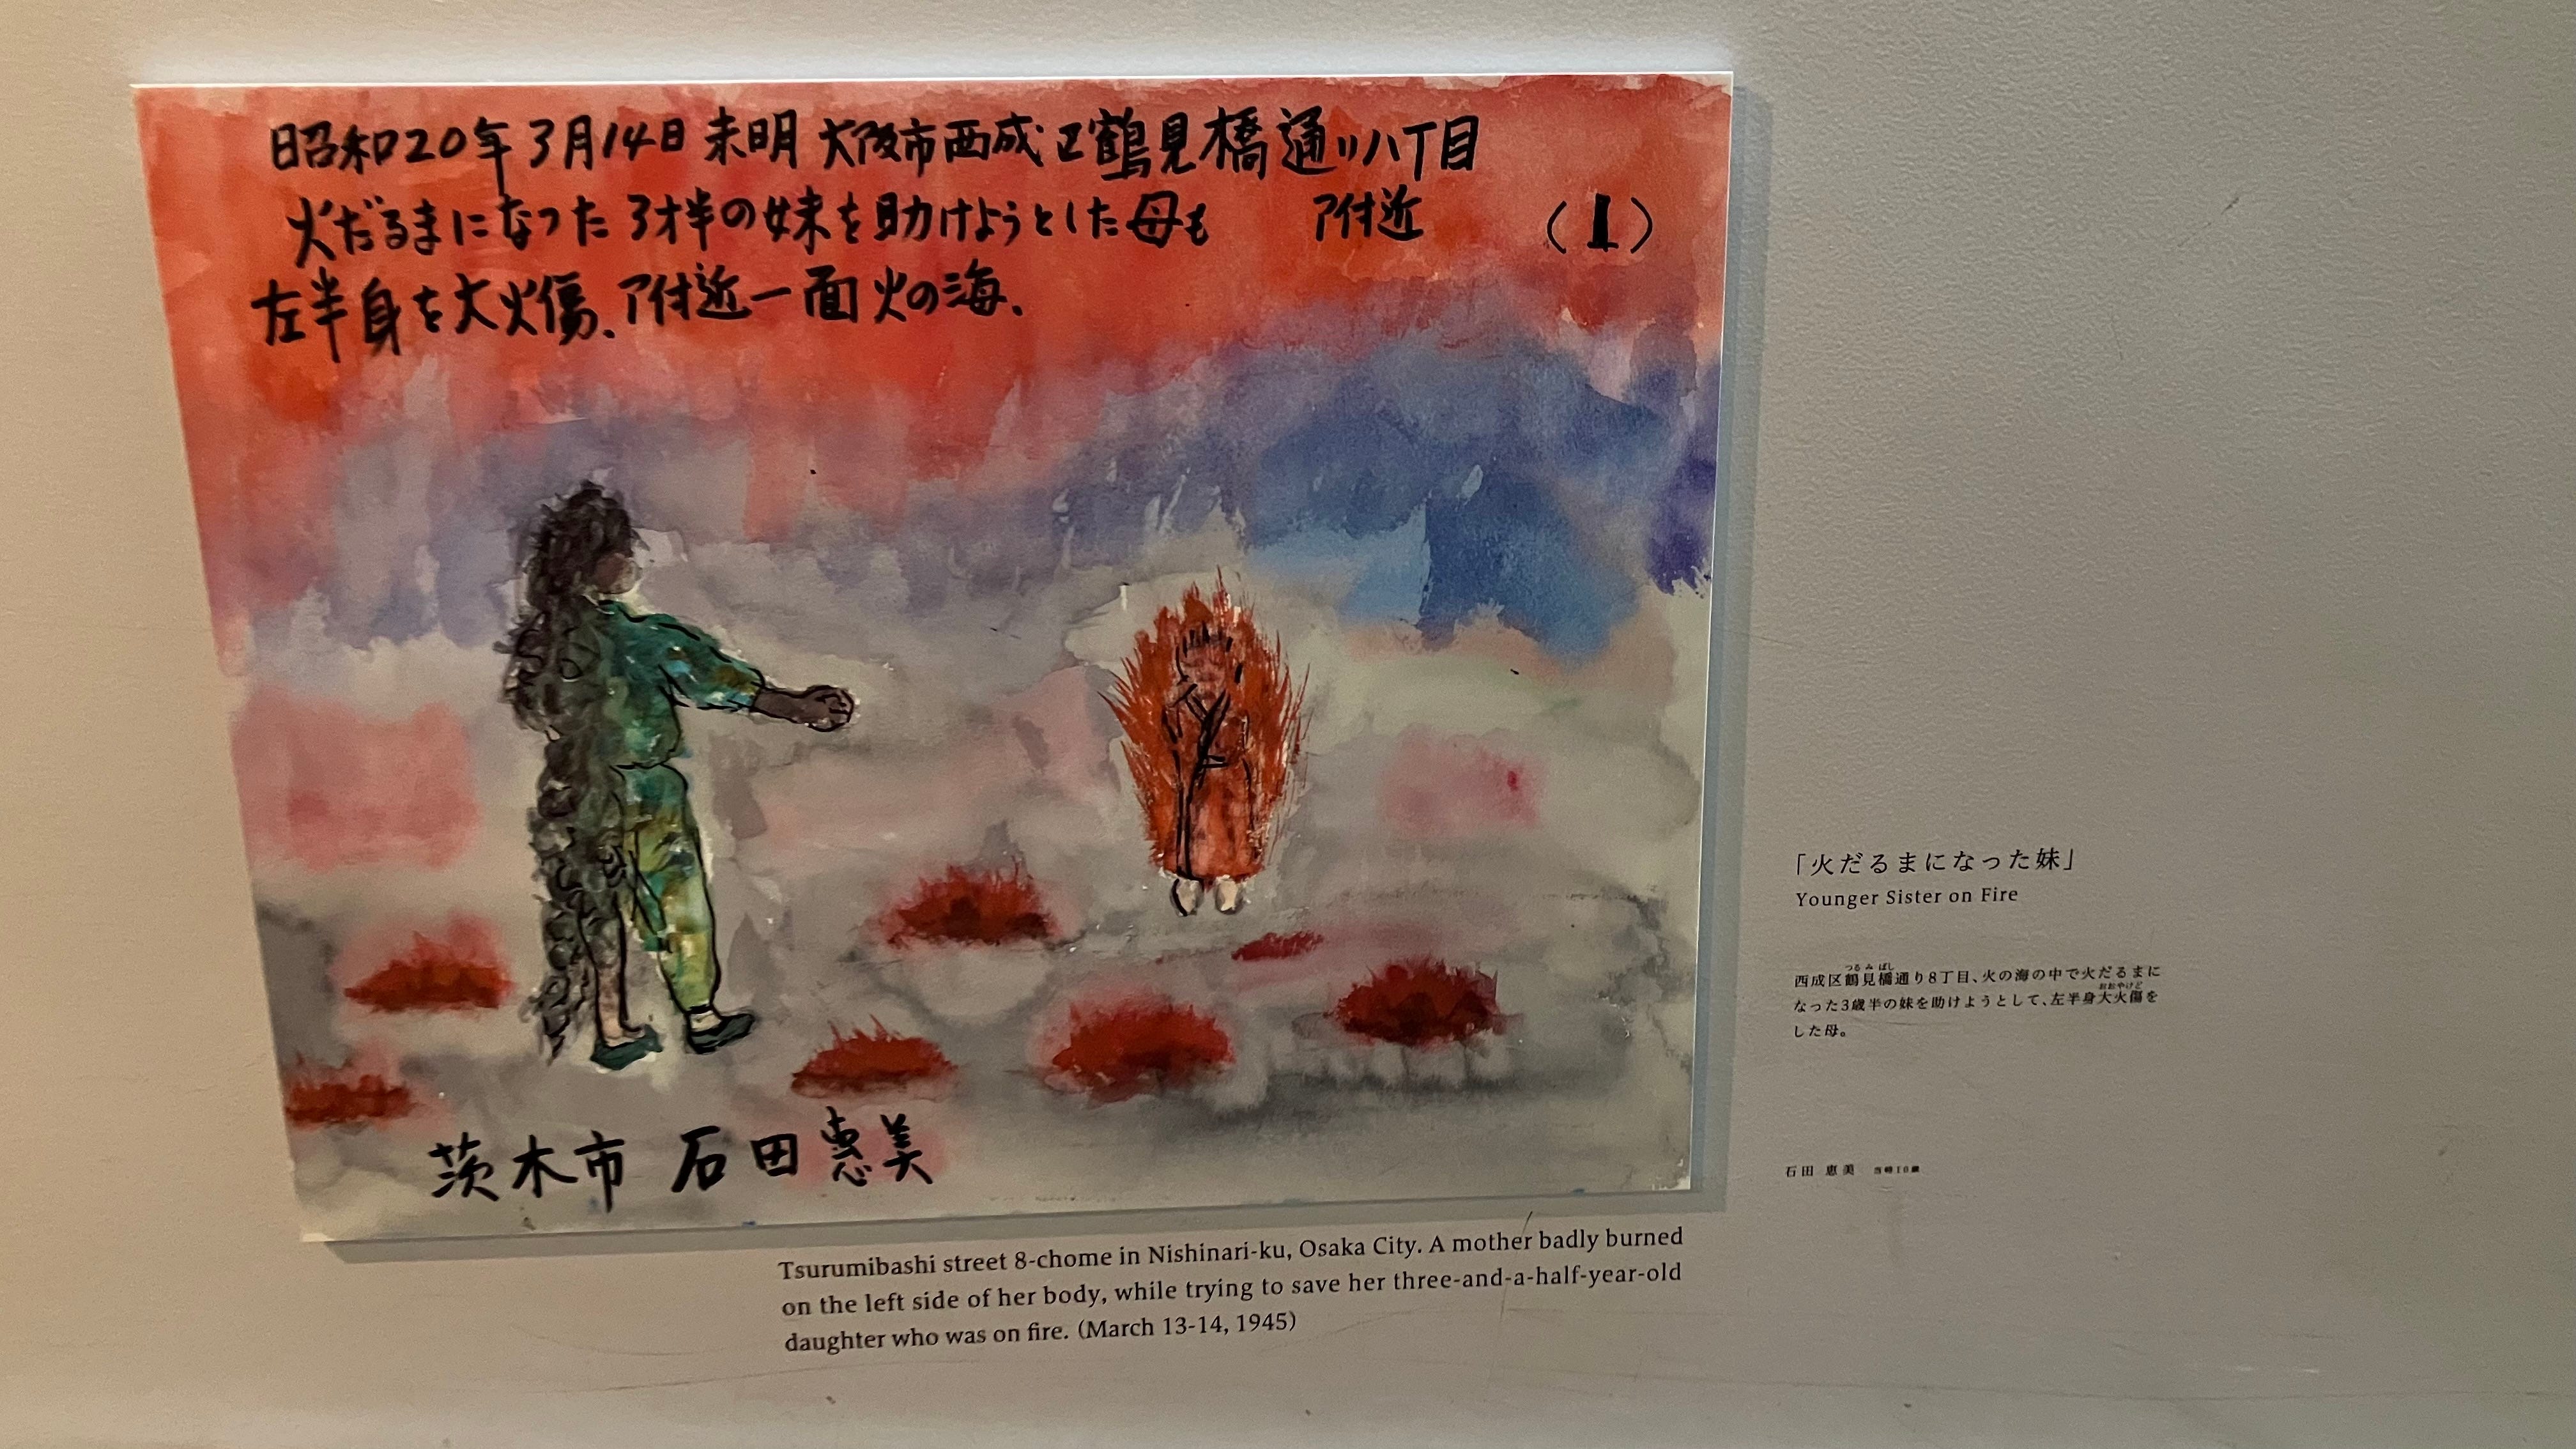 昭和20年3月14日未明 大阪市西成区鶴見橋通り八丁目
附近 (1)
火だるまになった3才半の妹を助けようとした母も
左半身を大火傷、附近一面火の海、
茨木市 石田恵美
「火だるまになった妹」
Younger Sister on Fire
つるみばし
西成区鶴見橋通り8丁目、火の海の中で火だるまに
おおやけど
なった3歳半の妹を助けようとして、左半身大火傷を
した母。
石田 恵美 当時10歳
Tsurumibashi street 8-chome in Nishinari-ku, Osaka City. A mother badly burned
on the left side of her body, while trying to save her three-and-a-half-year-old
daughter who was on fire. (March 13-14, 1945)